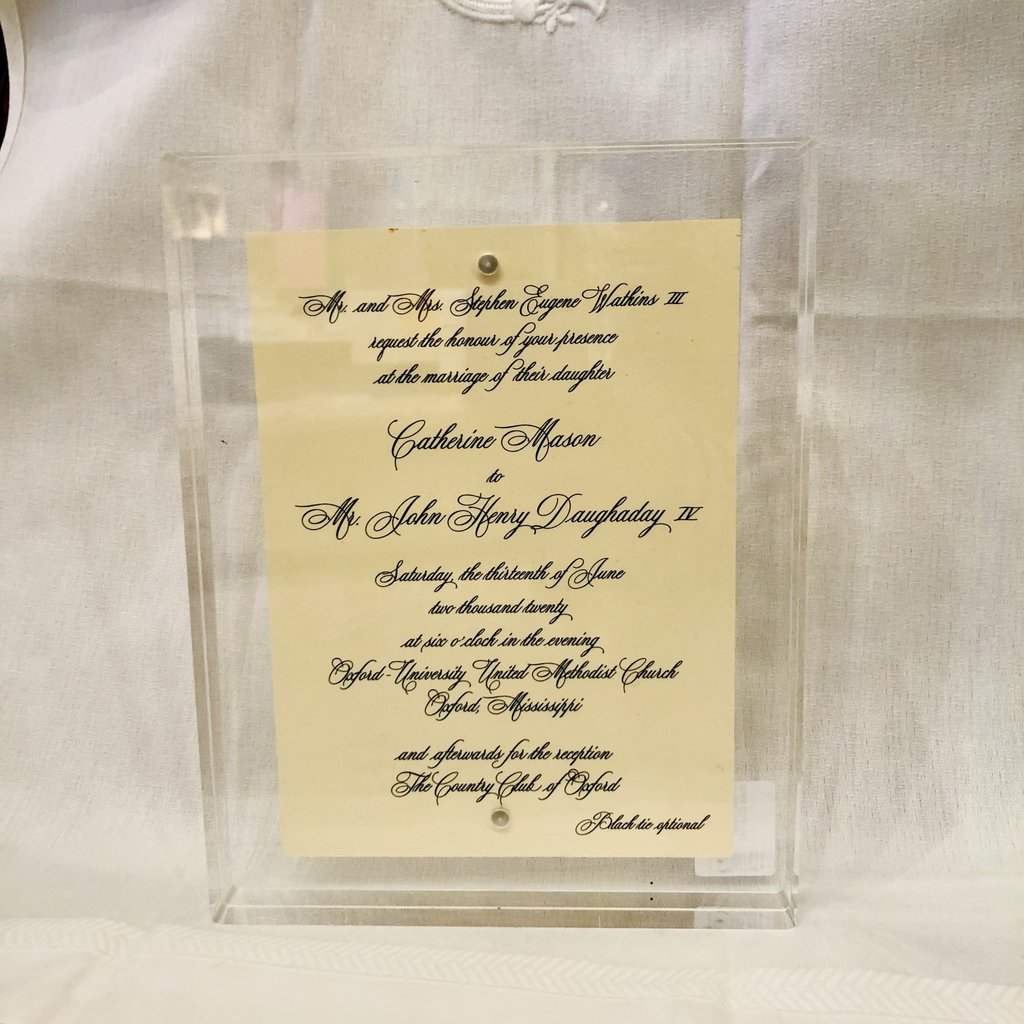 Mr. and Mrs. Stephen Eugene Watkins III
request the honour of your presence
at the marriage of their daughter
Catherine Mason
to
Mr. John Henry Daughaday IV
Saturday, the thirteenth of June
two thousand twenty
at six o'clock in the evening
Oxford-University United Methodist Church
Oxford, Mississippi
and afterwards for the reception
The Country Club of Oxford
Black tie optional